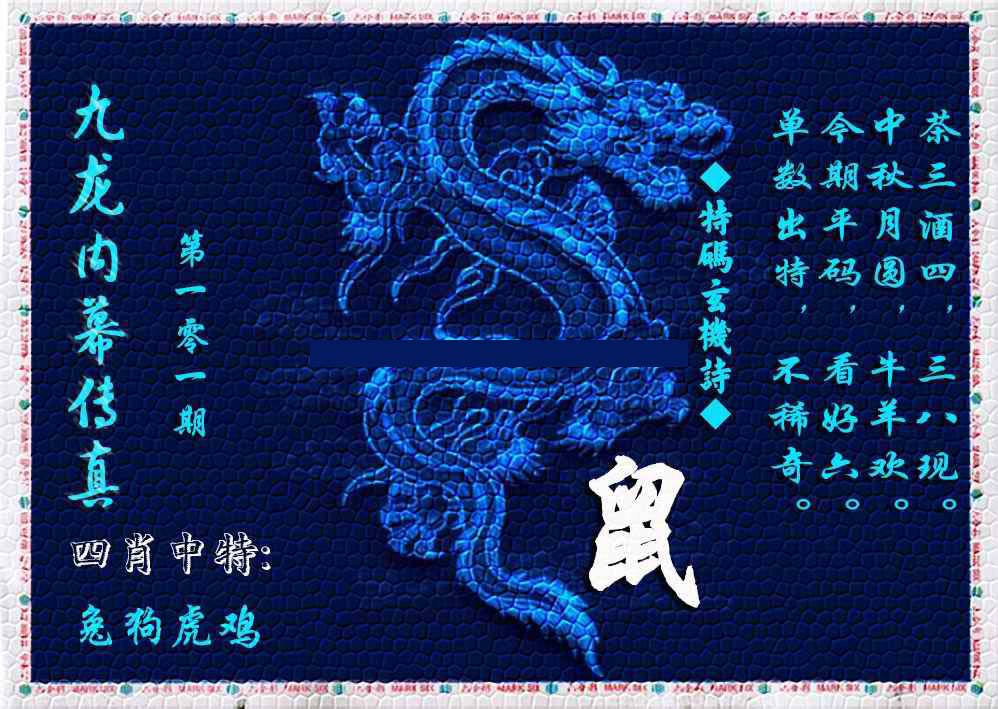 九龙内幕传真
第一零一期
四肖中特:
兔狗虎鸡
鼠
◆特碼玄機詩◆
茶三酒四，三八现。
中秋月圆，牛羊欢。
今期平码，看好六。
单数出特，不稀奇。
六合彩 MARK SIX